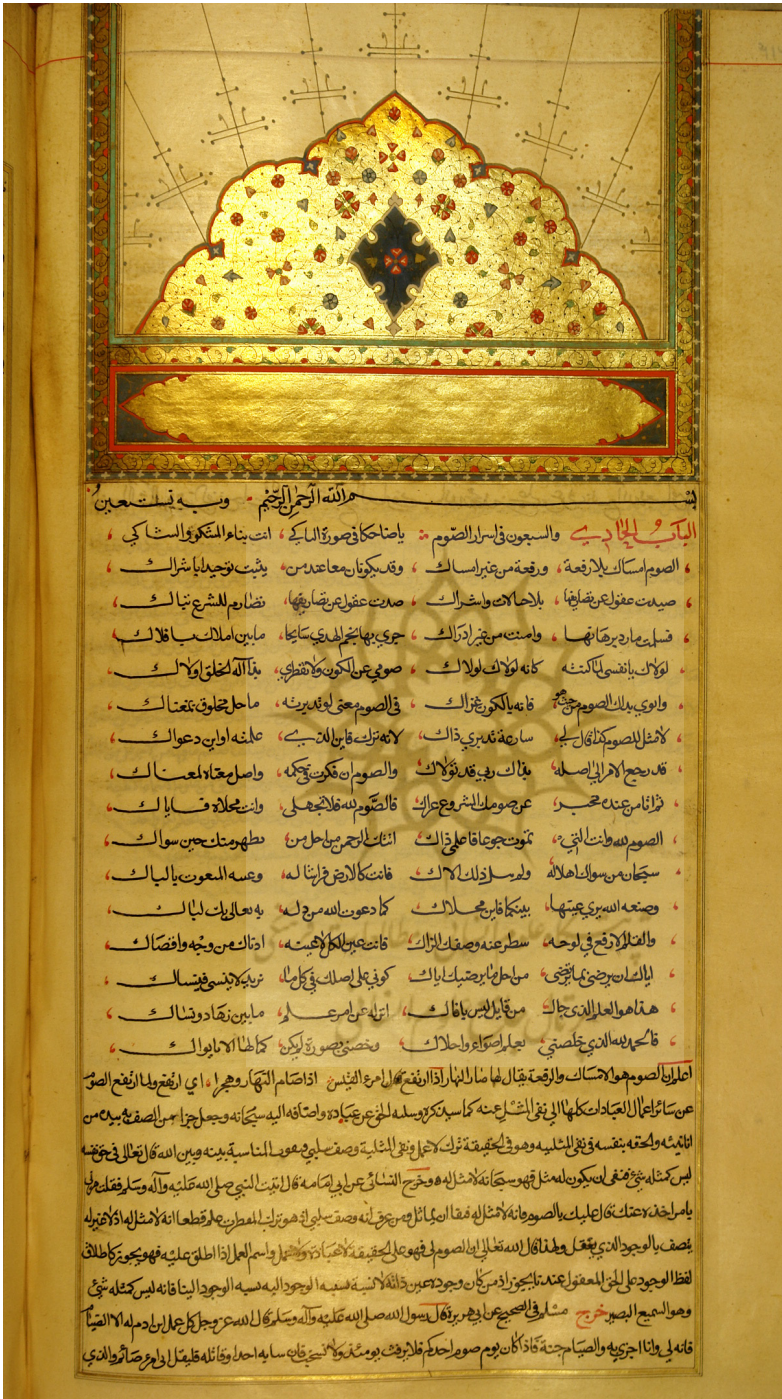 بسم الله الرحمن الرحيم وبه نستعين
الباب الحادي والسبعون في اسرار الصوم يا ضاحكا في صورة الباكي انت بناء المشكو والشاكي
الصوم امساك بلا رفعة ورفعة من غير امساك وقد يكونان معا عند من يثبت توحيدا باشراك
صيدت عقول عن تصاريفها بلا حبالات واشراك صدت عقول عن تصاريفها
فسلمت ما رد برهانها وامنت من غير ادراك جرى بها نجم الهدى سابحا ما بين املاك بافلاك
لولاك يا نفسي لما كنته كانه لولاك لولاك صومي عن الكون ولا تفطري بذا اله الخلق اولاك
وانوي بذلك الصوم من حيث هو فانه بالكون غزاك في الصوم معنى لو تدبرته ما حل مخلوق بمغناك
لا مثل للصوم كذا قال لي شارعه تدبري ذاك لانه ترك فاين الذي علمته او اين دعواك
قد رجع الامر الى اصله بذاك ربي قد تولاك والصوم ان فكرت في حكمه واصل معناه لمعناك
ثم اتا من عنده مخبر عن صومك المشروع عراك فالصوم لله فلا تجهلي وانت مجلاه فاياك
الصوم لله وانت التي تموت جوعا فاعلمي ذاك انثك الرحمن من اجل من يظهر منك حين سواك
سبحان من سواك اهلا له ولم ينل ذلك الاك فانت كالارض فراشا له وعينه المنعوت بالباك
وصنعة الله يرى عينها بينكما فاين مجلاك كما دعوت الله من ذله به تعالى بك لباك
والقلم الارفع في لوحه سطر عنه وصفك الزاك فانت عين الكل لا عينه ادناك من وجه واقصاك
اياك ان ترضى بما ترتضي من اجل ما يرضيك اياك كوني على اصلك في كل ما يريد لا تنسى فينساك
هذا هو العلم الذي جاك من قايل ليس بافاك انزله عن امر علم ما بين زهاد ونساك
فالحمد لله الذي خصني بعلم اضواء واحلاك وخصني بصورة لم يكن كمالها الا بابواك
اعلم ان الصوم هو الامساك والرفعة يقال لها صار النهار اذا ارتفع قال امرء القيس اذا صام النهار وهجرا اي ارتفع ولما ارتفع الصوم
عن سائر اعمال العبادات كلها الى نفي المثل عنه كما سيذكره وسلبه الحق عن عباده واضافه اليه سبحانه وجعل جزاء من اتصف به بيده من
انانيته والحقه بنفسه في نفي المثلية وهو في الحقيقة ترك لا عمل ونفي المثلية وصف سلبي فتقوت المناسبة بينه وبين الله قال تعالى في حق نفسه
ليس كمثله شئ فنفى ان يكون له مثل فهو سبحانه لا مثل له وخرج النسائي عن ابي امامه قال اتيت النبي صلى الله عليه وآله وسلم فقلت مرني
يامر اخذه عنك قال عليك بالصوم فانه لا مثل له فنفا ان يماثل ومن عرف انه وصف سلبي اذ هو ترك المفطرات علم قطعا انه لا مثل له اذ لا عين له
يتصف بالوجود الذي يعقل ولهذا قال الله تعالى ان الصوم لي فهو على الحقيقة لا عبادة ولا عمل واسم العمل اذا اطلق عليه فهو بجوز كاطلاق
لفظ الوجود على الحق المعقول عندنا بجوز اذ من كان وجوده عين ذاته لا تشبه نسبة الوجود اليه نسبة الوجود الينا فانه ليس كمثله شئ
وهو السميع البصير خرج مسلم في الصحيح عن ابي هريرة قال رسول الله صلى الله عليه وآله وسلم قال الله عز وجل كل عمل ابن ادم له الا الصيام
فانه لي وانا اجزي به والصيام جنة فاذا كان يوم صوم احدكم فلا يرفث يومئذ ولا يسخب فان سابه احد او قاتله فليقل اني امرء صائم والذي